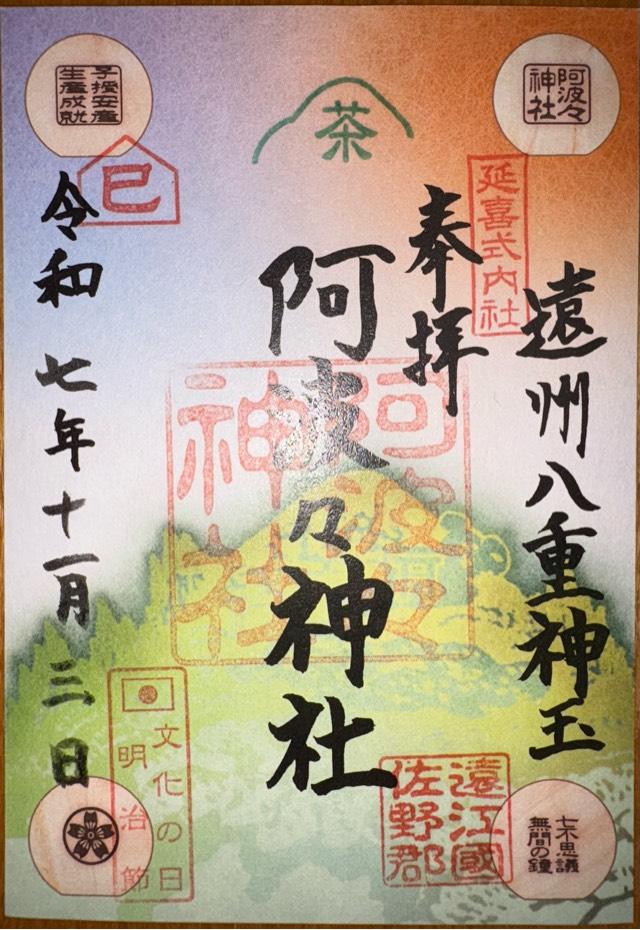 阿波々神社
遠州八重神玉
延喜式内社
奉拝
茶
阿波々神社
阿波々神社
子授安産
生産成就
巳
令和七年十一月三日
文化の日
明治節
遠江國
佐野郡
七不思議
無間の鐘